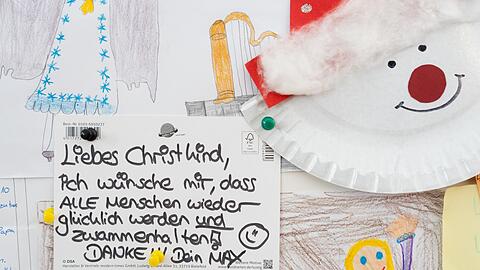 Liebes Christkind,
Ich wünsche mir, dass
ALLE Menschen wieder
glücklich werden und
zusammenhalten!
DANKE!!! Dein MAX
© DSA
FSC